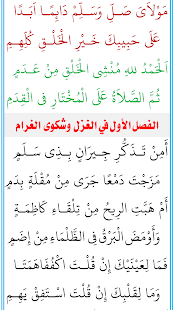 مَوْلَايَ صَلِّ وَسَلِّمْ دَائِمًا أَبَدًا
عَلَى حَبِيبِكَ خَيْرِ الْخَلْقِ كُلِّهِمِ
الْحَمْدُ للهِ مُنْشِي الْخَلْقِ مِنْ عَدَمِ
ثُمَّ الصَّلَاةُ عَلَى الْمُخْتَارِ فِي الْقِدَمِ
الفصل الأول في الغزل وشكوى الغرام
أَمِنْ تَذَكُّرِ جِيرَانٍ بِذِي سَلَمِ
مَزَجْتَ دَمْعًا جَرَى مِنْ مُقْلَةٍ بِدَمِ
أَمْ هَبَّتِ الرِّيحُ مِنْ تِلْقَاءِ كَاظِمَةٍ
وَأَوْمَضَ الْبَرْقُ فِي الظَّلْمَاءِ مِنْ إِضَمِ
فَمَا لِعَيْنَيْكَ إِنْ قُلْتَ اكْفُفَاهَمَتَا
وَمَا لِقَلْبِكَ إِنْ قُلْتَ اسْتَفِقْ يَهِمِ